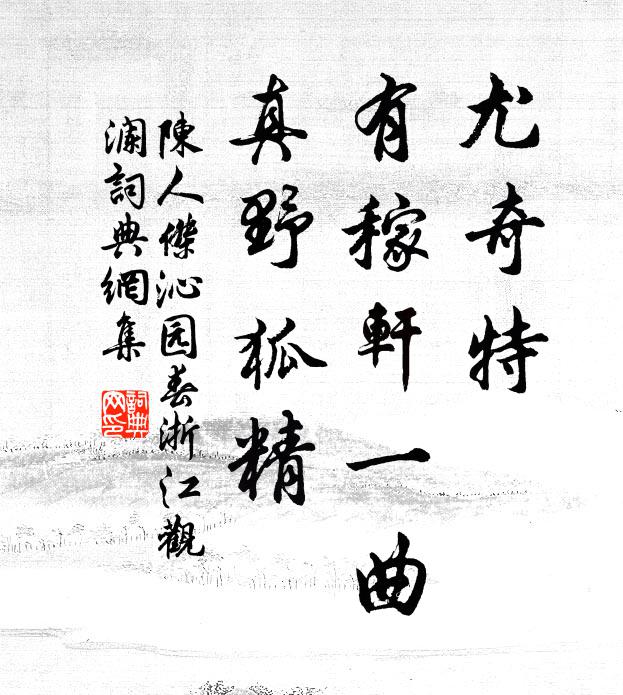 尤奇特
有稼軒一曲
真野狐精
陳人傑沁园春浙江觀
瀾詞典網集
詞典
网印